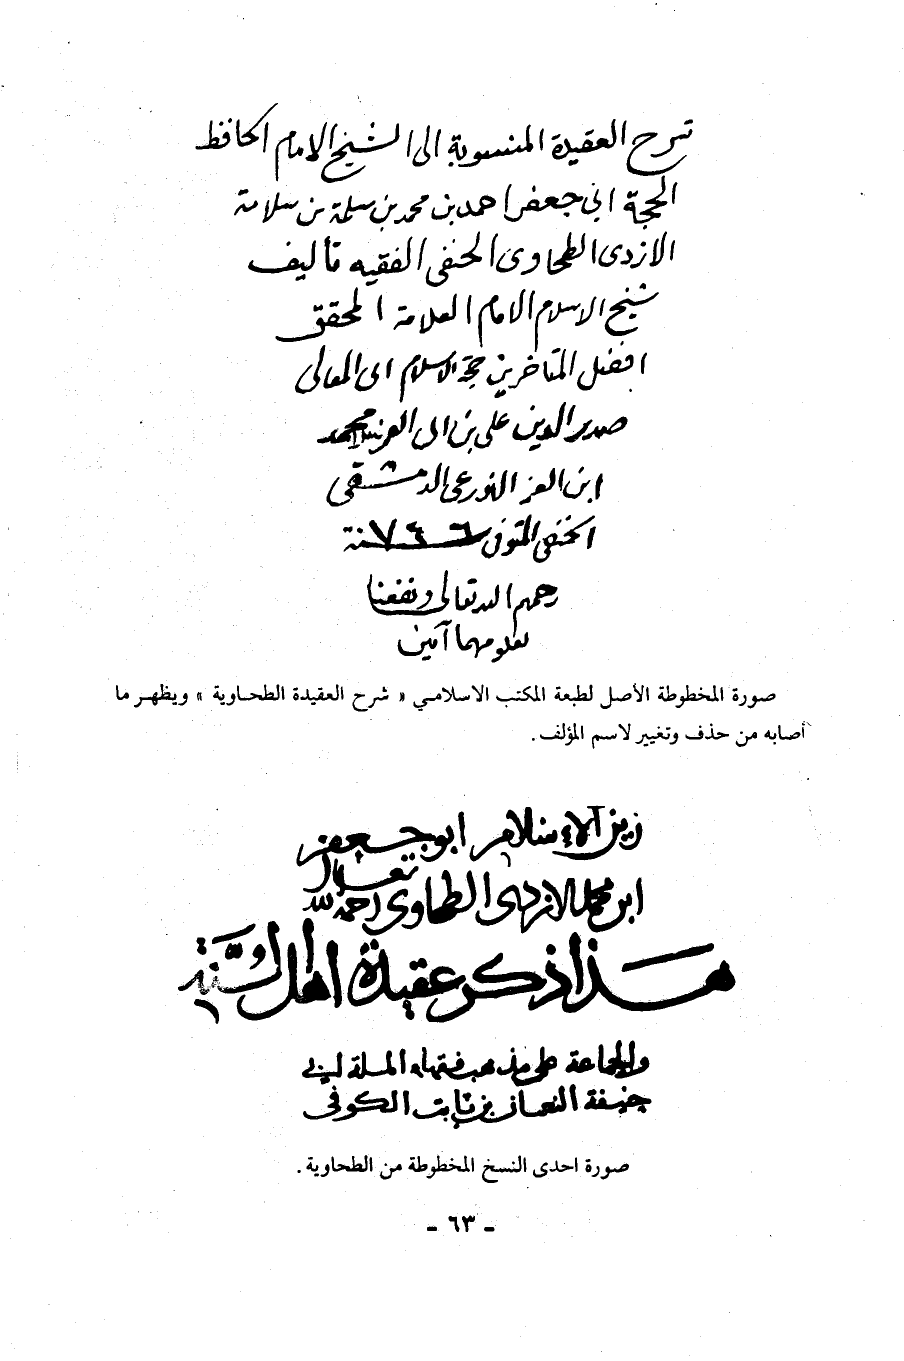 شرح العقيدة المنسوبة الى الشيخ الامام الحافظ
الحجة ابي جعفر احمد بن محمد بن سلمة بن سلامة
الازدى الطحاوى الحنفى الفقيه تأليف
شيخ الاسلام الامام العلامة المحقق
افضل المتاخرين حجة الاسلام ابى المعالى
صدر الدين على بن ابى العز محمد
ابن العز الاذرعى الدمشقى
الحنفى المتوفى سنة ٧٤٦
رحمهم الله تعالى ونفعنا
بعلومهما آمين
صورة المخطوطة الأصل لطبعة المكتب الاسلامي « شرح العقيدة الطحاوية » ويظهر ما
أصابه من حذف وتغيير لاسم المؤلف .
زين الاسلام ابو جعفر
ابن محمد الازدى الطحاوى رحمه الله تعالى
هذا ذكر عقيدة اهل السنة
والجماعة على مذهب فقهاء الملة ابي
حنيفة النعمان بن ثابت الكوفى
صورة احدى النسخ المخطوطة من الطحاوية .
- ٦٣ -